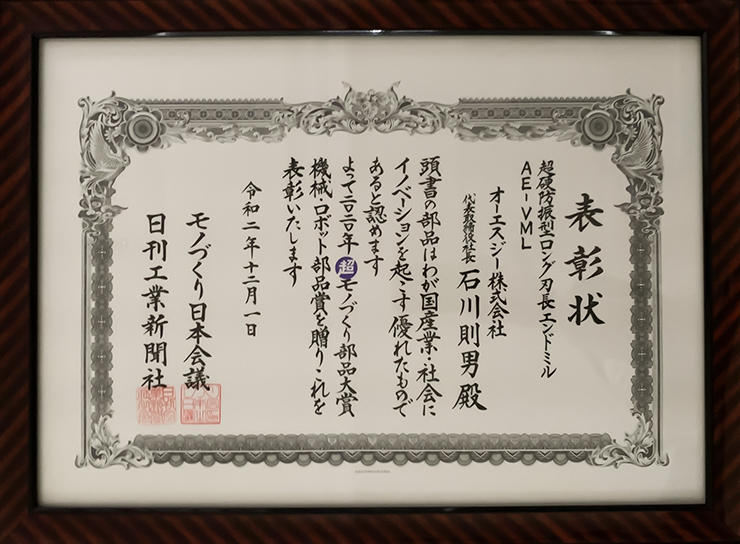 表彰状
超硬防振型ロング刃長エンドミル
AE-VML
オーエスジー株式会社
代表取締役社長 石川則男 殿
頭書の部品はわが国産業・社会に
イノベーションを起こす優れたもので
あると認めます
よって二〇二〇年超モノづくり部品大賞
機械・ロボット部品賞を贈りこれを
表彰いたします
令和二年十二月一日
モノづくり日本会議
日刊工業新聞社